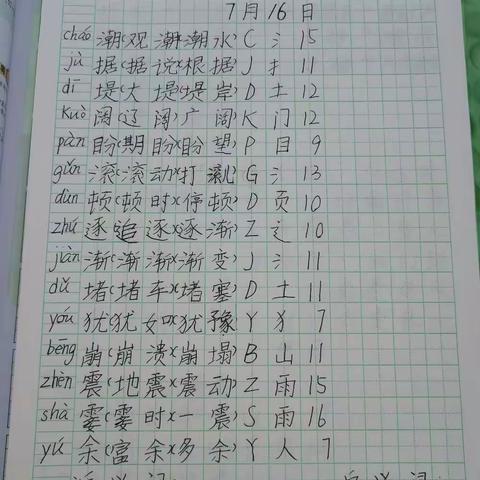 7月16日
cháo 潮(观潮)(潮水) C 氵 15
jù 据(据说)(根据) J 扌 11
dī 堤(大堤)(堤岸) D 土 12
kuò 阔(辽阔)(广阔) K 门 12
pàn 盼(期盼)(盼望) P 目 9
gǔn 滚(滚动)(打滚) G 氵 13
dùn 顿(顿时)(停顿) D 页 10
zhú 逐(追逐)(逐渐) Z 辶 10
jiàn 渐(渐渐)(渐变) J 氵 11
dǔ 堵(堵车)(堵塞) D 土 11
yóu 犹(犹如)(犹豫) Y 犭 7
bēng 崩(崩溃)(崩塌) B 山 11
zhèn 震(地震)(震动) Z 雨 15
shà 霎(霎时)(一震) S 雨 16
yú 余(富余)(多余) Y 人 7